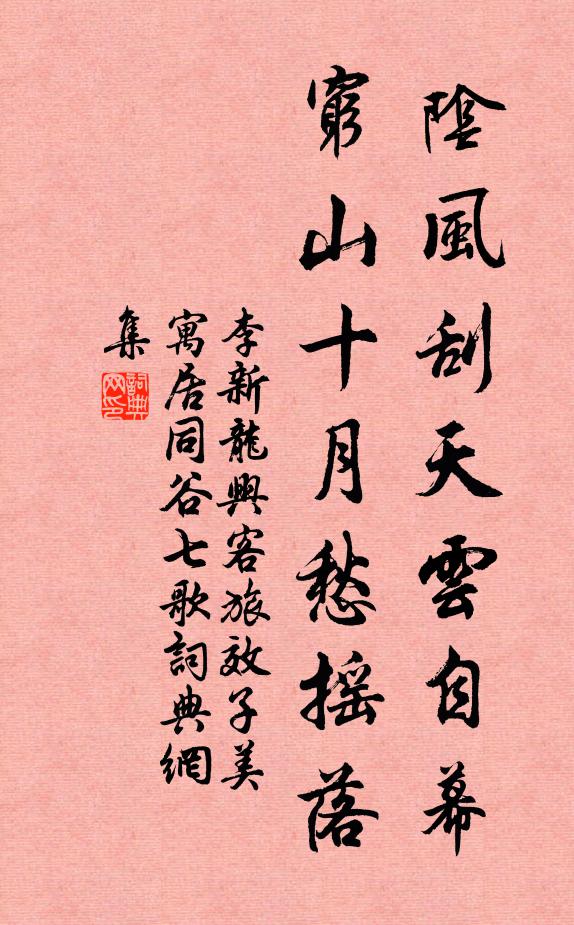 陰風刮天雲自幕
窮山十月愁摇落
李新龍興客旅效子美
寓居同谷七歌詞典網
集
詞典網印